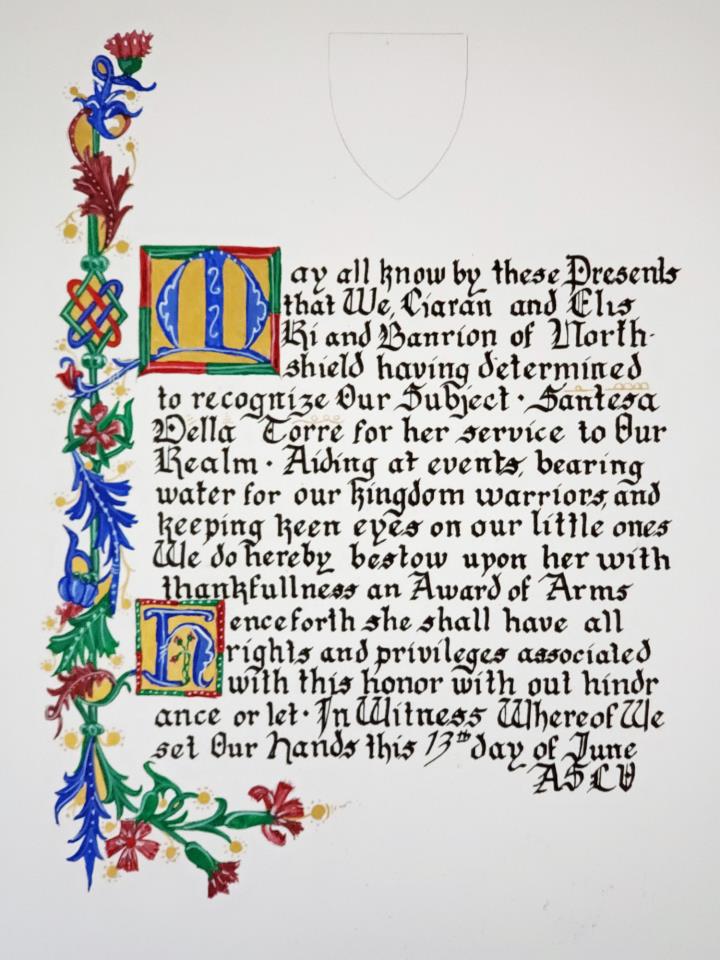 May all know by these Presents
that We, Ciaran and Elis
Ri and Banrion of North-
shield having determined
to recognize Our Subject · Santesa
Della Torre for her service to Our
Realm · Aiding at events, bearing
water for our kingdom warriors, and
keeping keen eyes on our little ones
We do hereby bestow upon her with
thankfullness an Award of Arms
Henceforth she shall have all
rights and privileges associated
with this honor with out hindr
ance or let · In Witness Whereof We
set Our hands this 13th day of June
AS LV